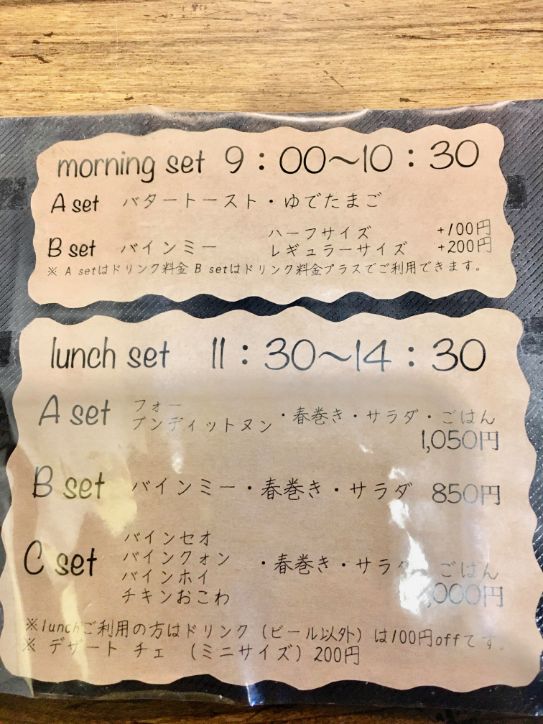 morning set 9：00～10：30
A set バタートースト・ゆでたまご
B set バインミー ハーフサイズ +100円
レギュラーサイズ +200円
※ A setはドリンク料金 B setはドリンク料金プラスでご利用できます。
lunch set 11：30～14：30
A set フォー
ブンディットヌン ・春巻き・サラダ・ごはん
1,050円
B set バインミー・春巻き・サラダ 850円
C set バインセオ
バインクォン ・春巻き・サラダ ごはん
バインホイ
チキンおこわ ,000円
※lunchご利用の方はドリンク（ビール以外）は100円offです。
※ デザート チェ （ミニサイズ）200円